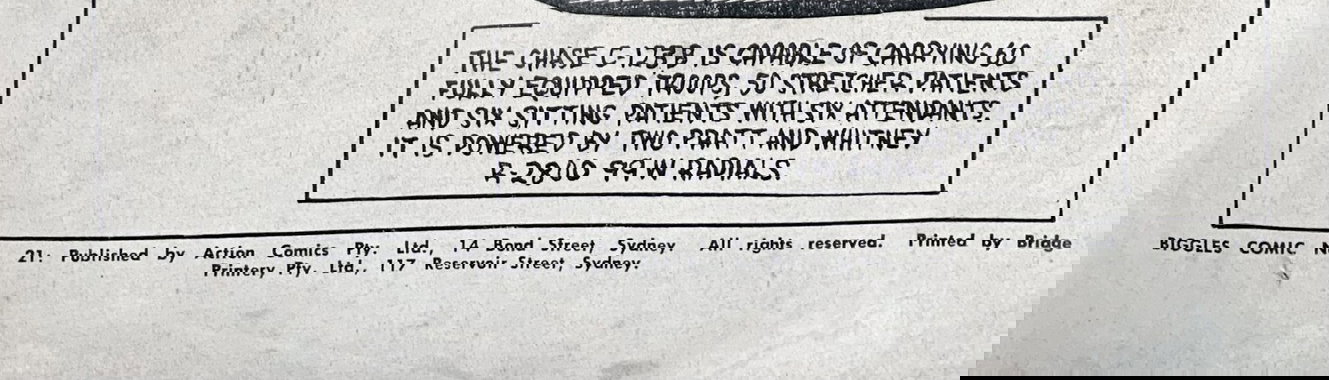 THE CHASE C-123B IS CAPABLE OF CARRYING 60
FULLY EQUIPPED TROOPS, 50 STRETCHER PATIENTS
AND SIX SITTING PATIENTS WITH SIX ATTENDANTS.
IT IS POWERED BY TWO PRATT AND WHITNEY
R-2800 99W RADIALS.
21: Published by Action Comics Pty. Ltd., 14 Bond Street, Sydney. All rights reserved. Printed by Bridge
Printery Pty. Ltd., 117 Reservoir Street, Sydney.
BUGGLES COMIC